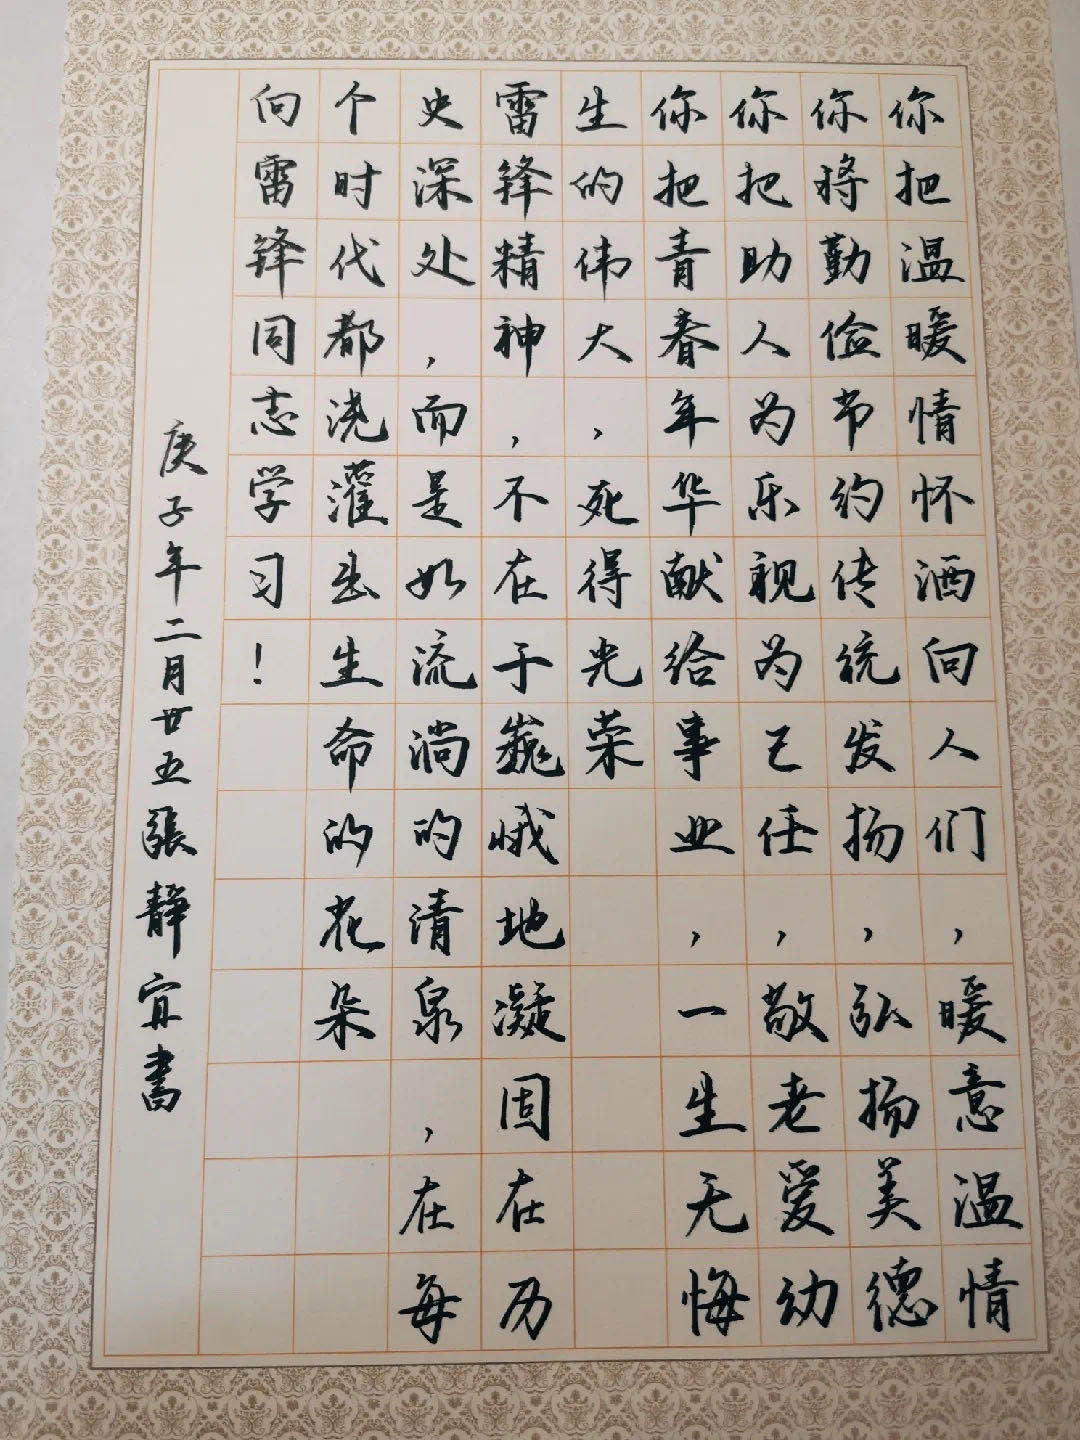 你把温暖情怀洒向人们，暖意温情
你将勤俭节约传统发扬，弘扬美德
你把助人为乐视为己任，敬老爱幼
你把青春年华献给事业，一生无悔
生的伟大，死得光荣
雷锋精神，不在于巍峨地凝固在历
史深处，而是如流淌的清泉，在每
个时代都浇灌出生命的花朵
向雷锋同志学习！
庚子年二月廿五張静宜書